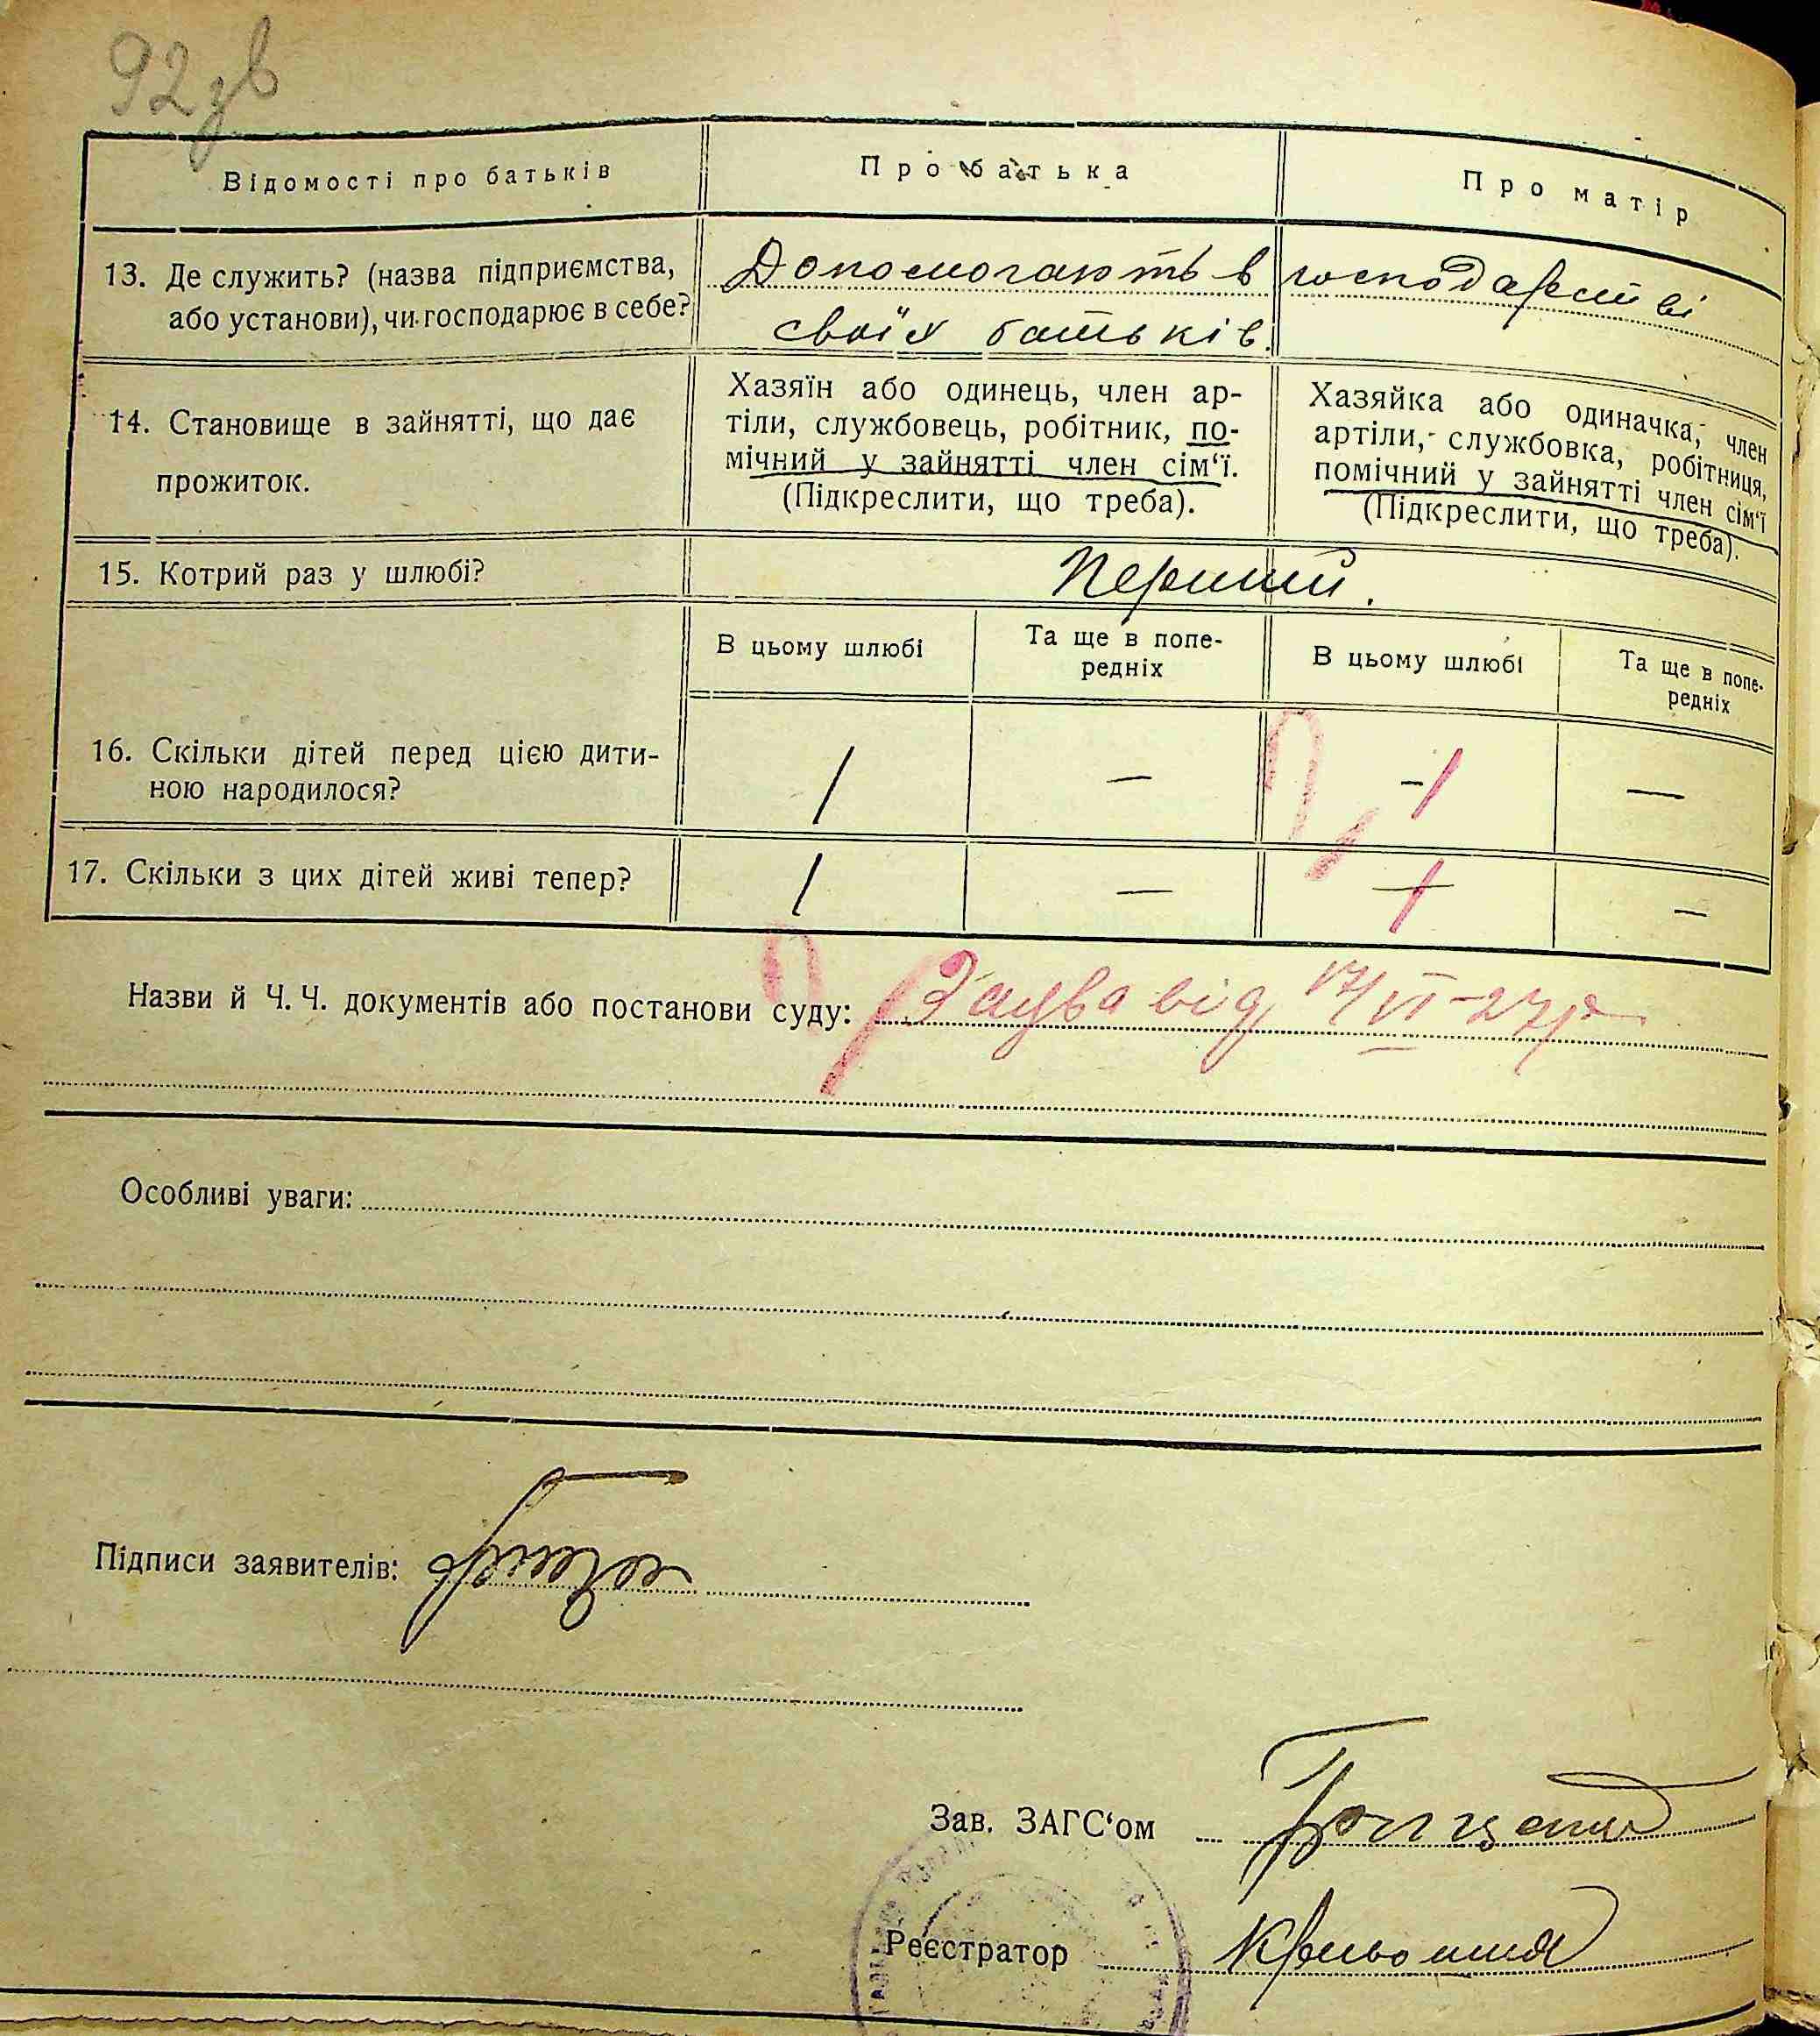 92 зв
Відомості про батьків
Про батька
Про матір
13. Де служить? (назва підприємства,
або установи), чи господарює в себе?
Допомогають в господарстві
своїх батьків.
14. Становище в зайнятті, що дає
прожиток.
Хазяїн або одинець, член ар-
тіли, службовець, робітник, по-
мічний у зайнятті член сім‘ї.
(Підкреслити, що треба).
Хазяйка або одиначка, член
артіли, службовка, робітниця,
помічний у зайнятті член сім‘ї
(Підкреслити, що треба).
15. Котрий раз у шлюбі?
Перший.
В цьому шлюбі
Та ще в попе-
редніх
В цьому шлюбі
Та ще в попе-
редніх
16. Скільки дітей перед цією дити-
ною народилося?
1 — 1 —
17. Скільки з цих дітей живі тепер?
1 — 1 —
Назви й Ч. Ч. документів або постанови суду: Заява від 17/VI-27р
Особливі уваги:
Підписи заявителів:
Зав. ЗАГС‘ом
Реєстратор